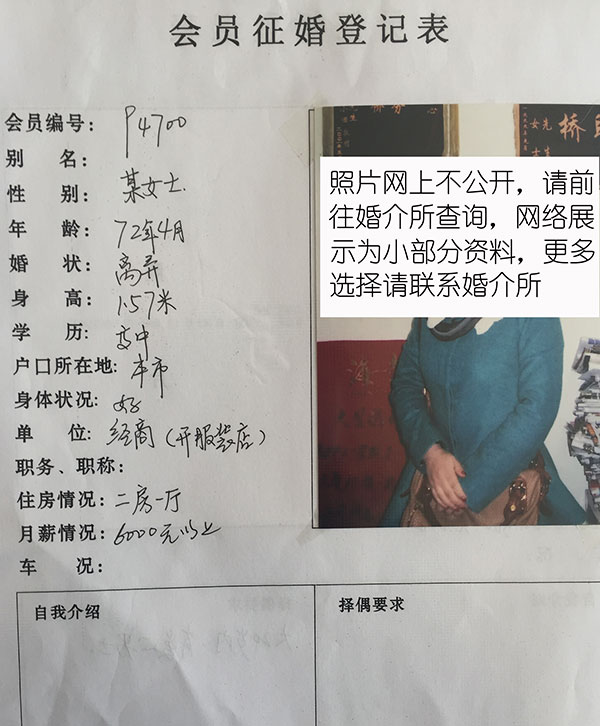 会员征婚登记表
会员编号: P4700
别 名:
性 别: 某女士
年 龄: 72年4月
婚 状: 离异
身 高: 1.57米
学 历: 高中
户口所在地: 本市
身体状况: 好
单 位: 经商（开服装店）
职务、职称:
住房情况: 二房一厅
月薪情况: 6000元以上
车 况:
自我介绍
择偶要求
照片网上不公开，请前
往婚介所查询，网络展
示为小部分资料，更多
选择请联系婚介所
桥
先生
女士